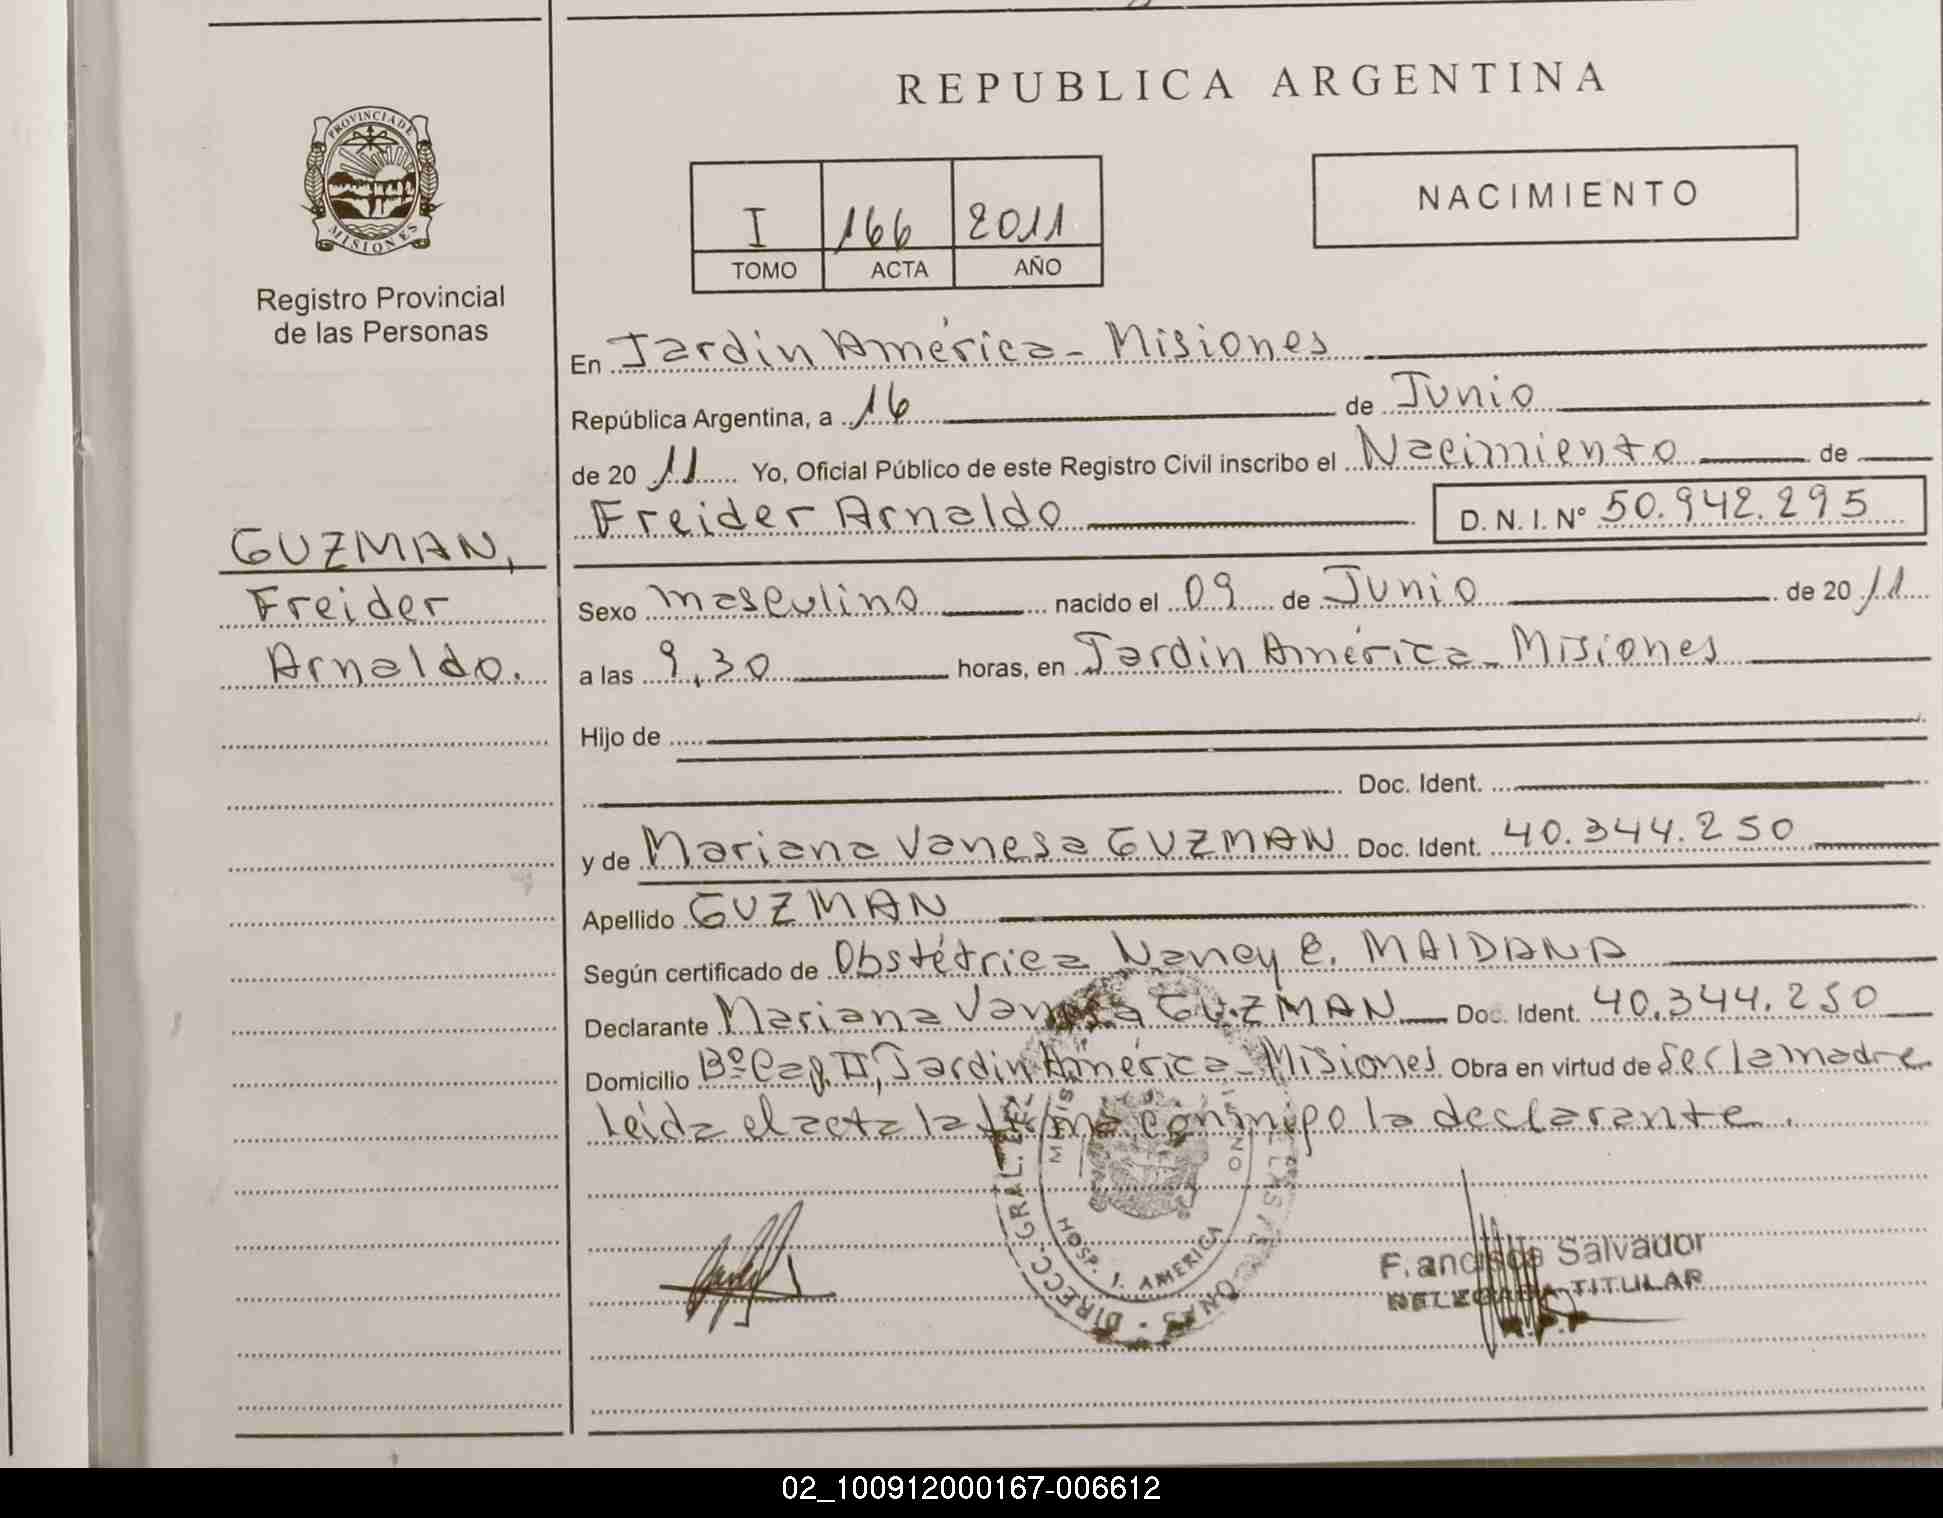 REPUBLICA ARGENTINA
PROVINCIA DE
MISIONES
Registro Provincial
de las Personas
NACIMIENTO
I 166 2011
TOMO ACTA AÑO
GUZMAN,
Freider
Arnaldo.
En Jardín América - Misiones
República Argentina, a 16 de Junio
de 20 11 Yo, Oficial Público de este Registro Civil inscribo el Nacimiento de
Freider Arnaldo D. N. I. Nº 50.942.295
Sexo masculino nacido el 09 de Junio de 20 11
a las 9,30 horas, en Jardín América - Misiones
Hijo de
Doc. Ident.
y de Mariana Vanesa GUZMAN Doc. Ident. 40.344.250
Apellido GUZMAN
Según certificado de Obstétrica Nancy E. MAIDANA
Declarante Mariana Vanesa GUZMAN Doc. Ident. 40.344.250
Domicilio Bº Cag. II, Jardín América - Misiones Obra en virtud de Ser la madre
leída el acta la firma conmigo la declarante.
DIRECC. GRAL.
HOSP. J. AMERICA
Salvador
TITULAR
02_100912000167-006612